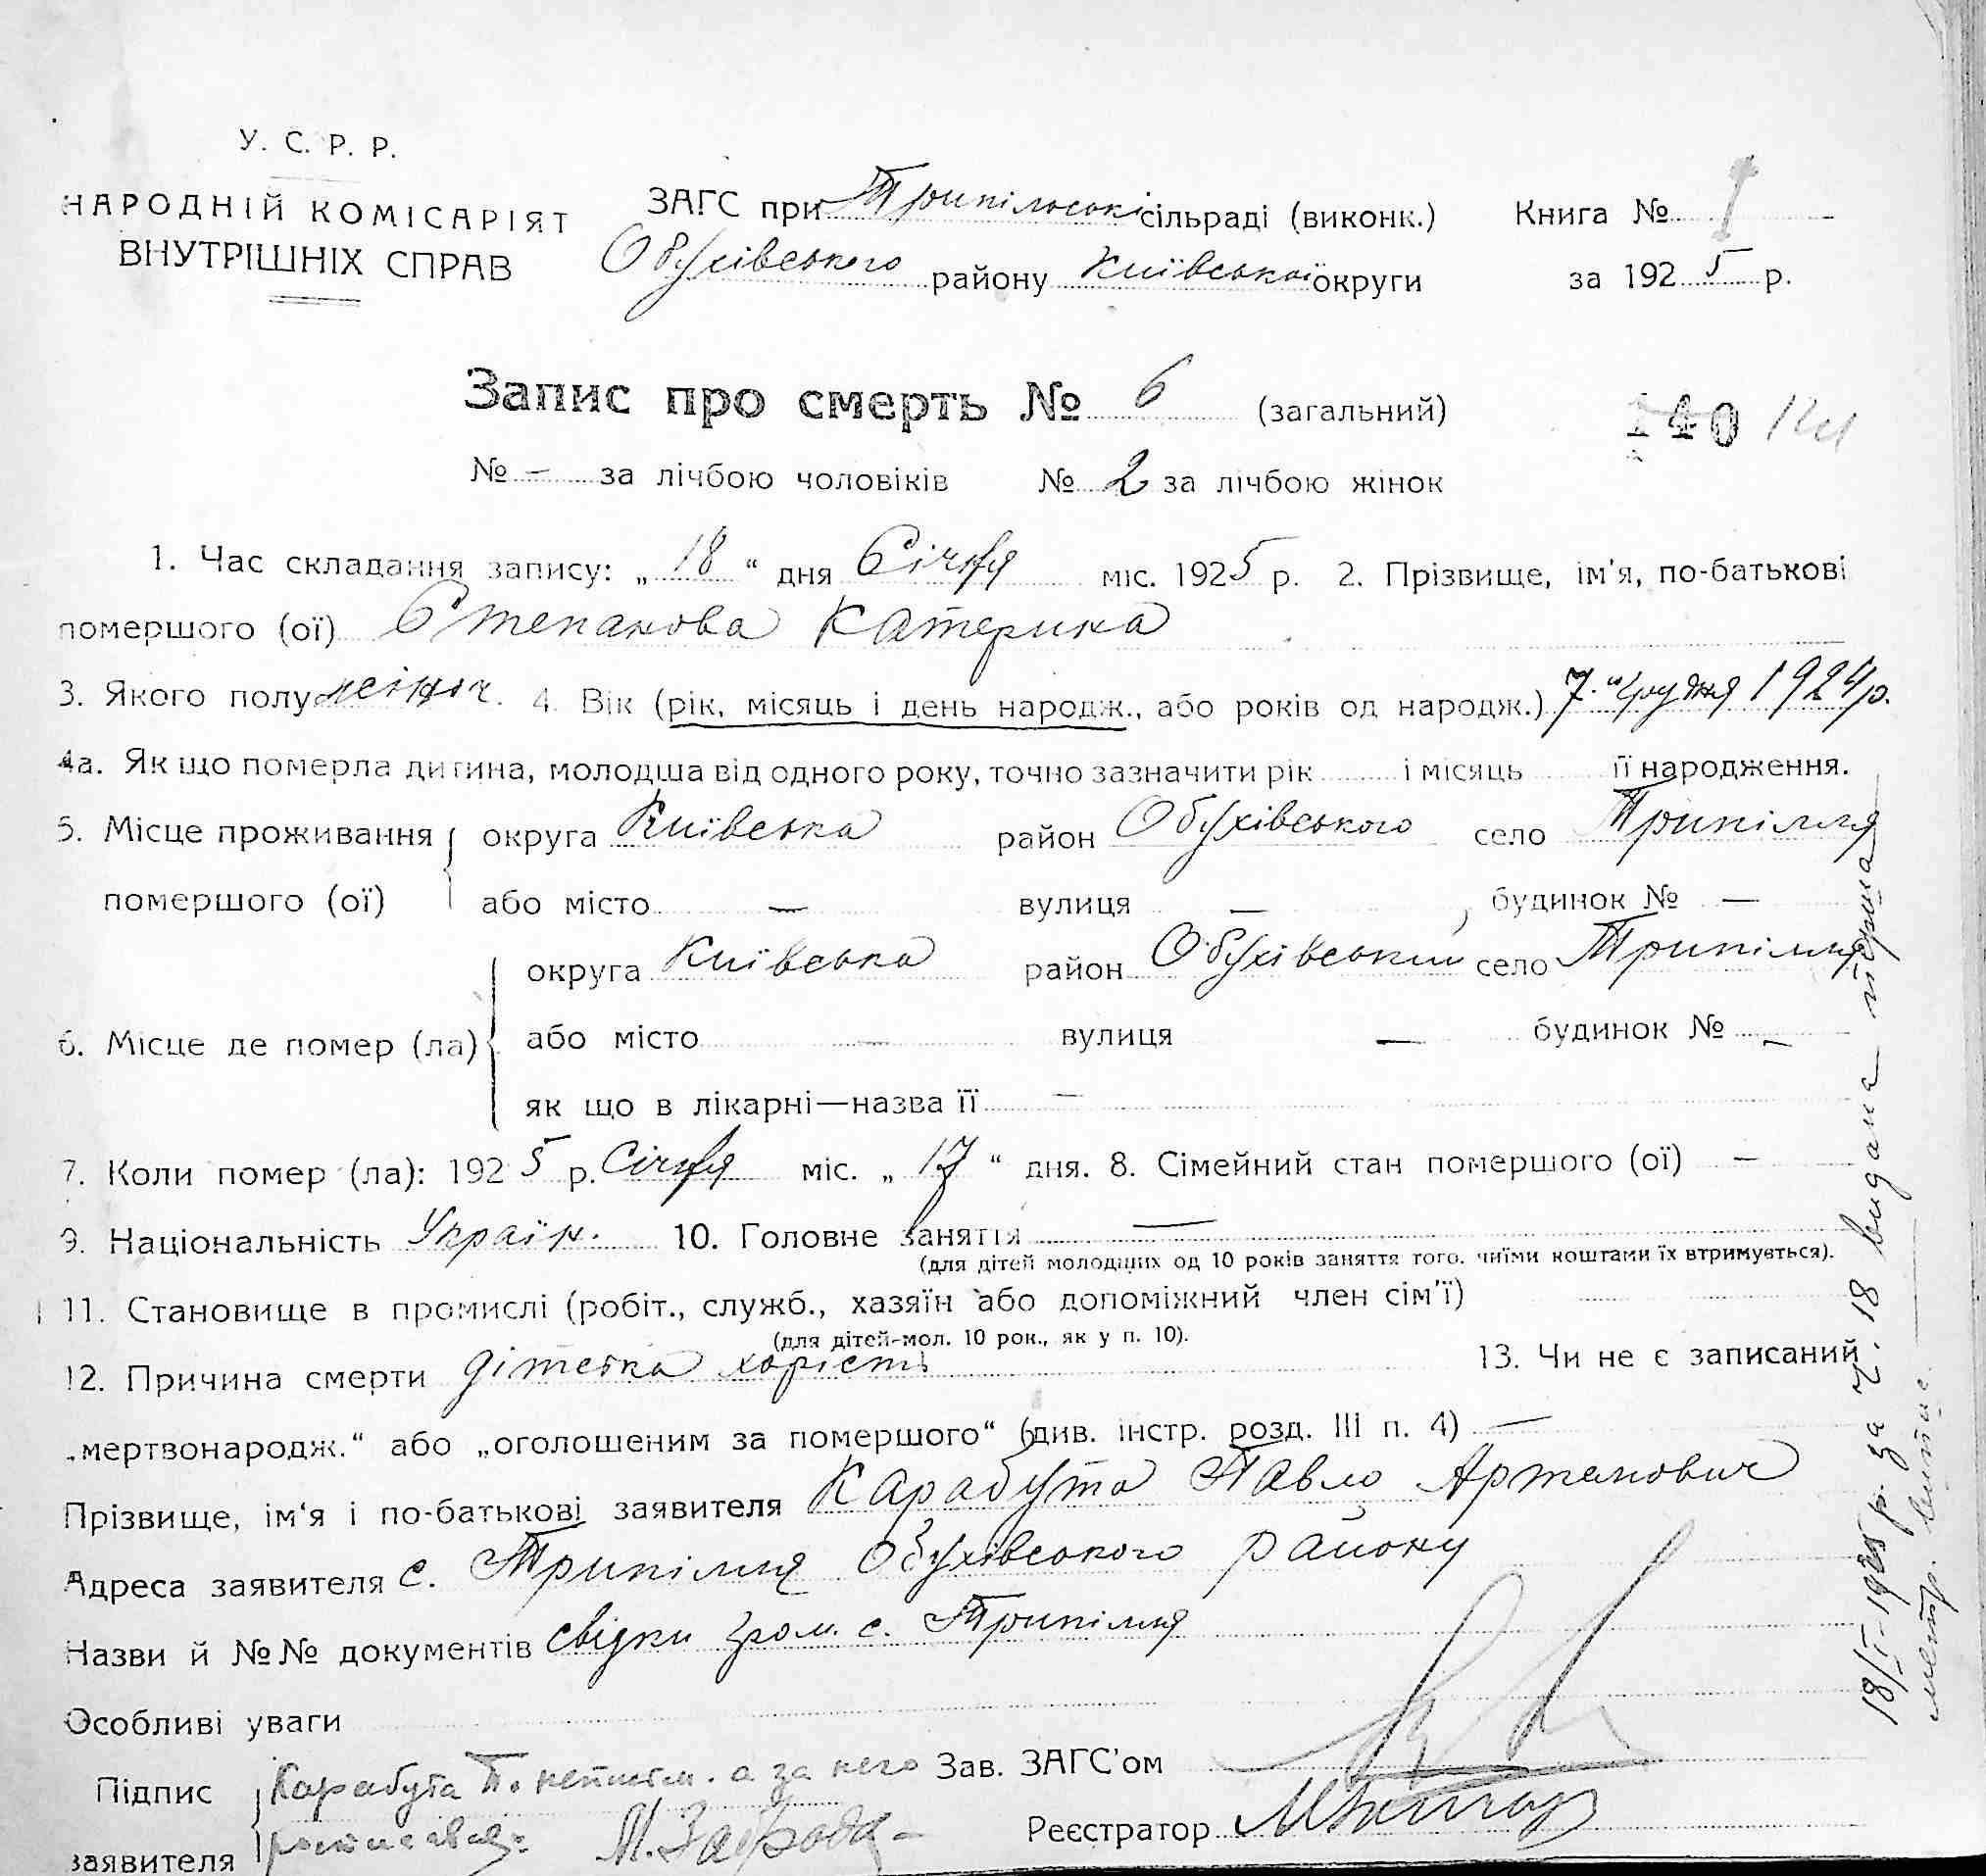 У. С. Р. Р.
НАРОДНІЙ КОМІСАРІЯТ
ВНУТРІШНІХ СПРАВ
ЗАГС при Трипільські сільраді (виконк.)
Обухівського району Київської округи
Книга № 1
за 1925 р.
Запис про смерть № 6 (загальний)
140
№ — за лічбою чоловіків № 2 за лічбою жінок
1. Час складання запису: „18“ дня Січня міс. 1925 р. 2. Прізвище, ім'я, по-батькові
помершого (ої) Степанова Катерина
3. Якого полу жіноч. 4. Вік (рік, місяць і день народж., або років од народж.) 7 "Грудня 1924 р.
4а. Як що померла дитина, молодша від одного року, точно зазначити рік і місяць її народження.
5. Місце проживання округа Київська район Обухівського село Трипілля
помершого (ої) або місто — вулиця — , будинок № —
округа Київська район Обухівський село Трипілля
6. Місце де помер (ла) або місто — вулиця — будинок № —
як що в лікарні—назва її —
7. Коли помер (ла): 1925 р. Січня міс. „17“ дня. 8. Сімейний стан помершого (ої) —
9. Національність Україн. 10. Головне заняття —
(для дітей молодших од 10 років заняття того. чиїми коштами їх втримується).
11. Становище в промислі (робіт., служб., хазяїн або допоміжний член сім'ї)
(для дітей-мол. 10 рок., як у п. 10).
12. Причина смерти дітська хорість 13. Чи не є записаний
„мертвонародж.“ або „оголошеним за помершого“ (див. інстр. розд. III п. 4) —
Прізвище, ім'я і по-батькові заявителя Карабута Павло Артемович
Адреса заявителя с. Трипілля Обухівського району
Назви й №№ документів свідки гром. с. Трипілля
Особливі уваги
Підпис Карабута П. неписм. а за него Зав. ЗАГС'ом
заявителя росписався М. Реєстратор
18/I-1925 р. за ч. 18 видана перша
метр. випис.